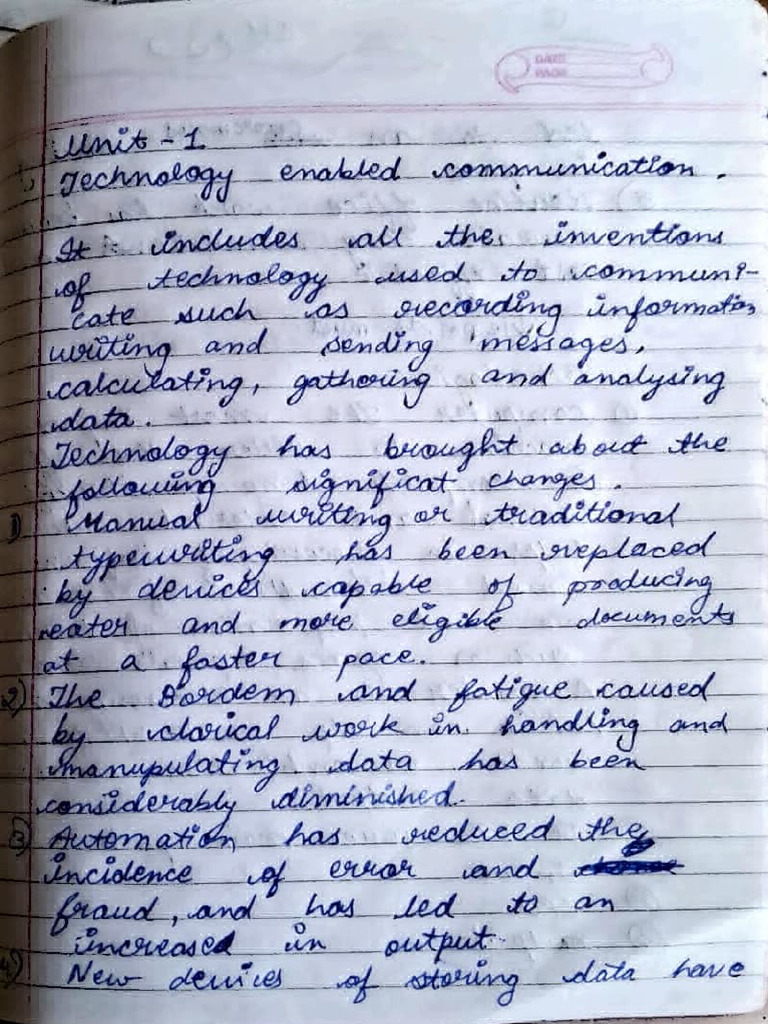 DATE
PAGE
Unit - 1
Technology enabled communication.
It includes all the inventions
of technology used to communi-
cate such as recording information
writing and sending messages,
calculating, gathering and analysing
data.
Technology has brought about the
following significat changes.
1) Manual writing or traditional
typewriting has been replaced
by devices capable of producing
neater and more eligible documents
at a faster pace.
2) The Bordem and fatigue caused
by clarical work in handling and
manupulating data has been
considerably diminished.
3) Automation has reduced the
incidence of error and
fraud, and has led to an
increased in output.
4) New devices of storing data have